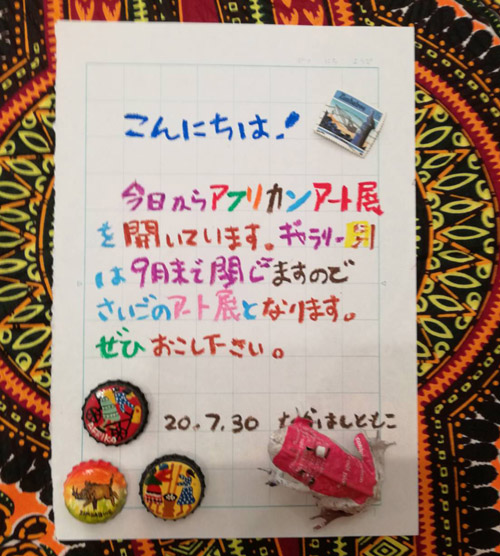 こんにちは!
今日からアフリカンアート展
を開いています。ギャラリー別
は9月末で閉じますので
さいごのアート展となります。
ぜひおこし下さい。
20.7.30 たかはしともこ